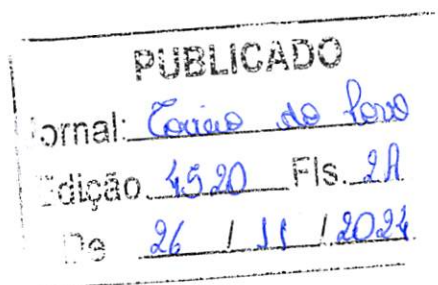 PUBLICADO
ornal: Correio do Povo
dição 4520 Fls. 2A
De 26 / 11 / 2024